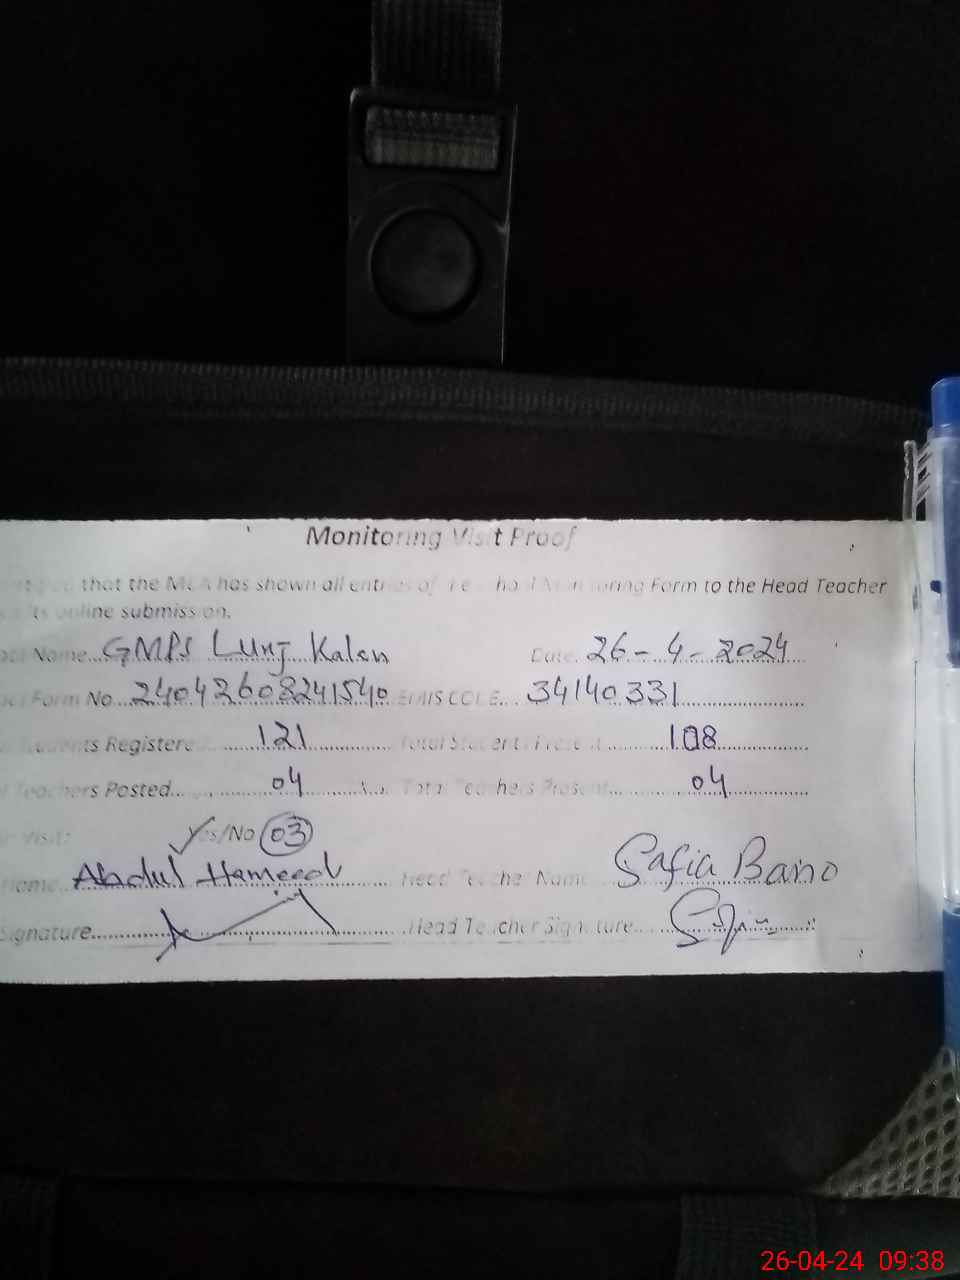 Monitoring Visit Proof
that the MEA has shown all entries of Monitoring Form to the Head Teacher
its online submission.
Name...GMPS Lunj Kalan Date. 26-4-2024
Form No...24042608241540 EMIS CODE...34140331
Students Registered......121...... Total Students Present......108......
Teachers Posted......04...... Total Teachers Present......04......
Visit: Yes/No 03
Name...Abdul Hameed...... Head Teacher Name Safia Bano
Signature............ Head Teacher Signature............
26-04-24 09:38